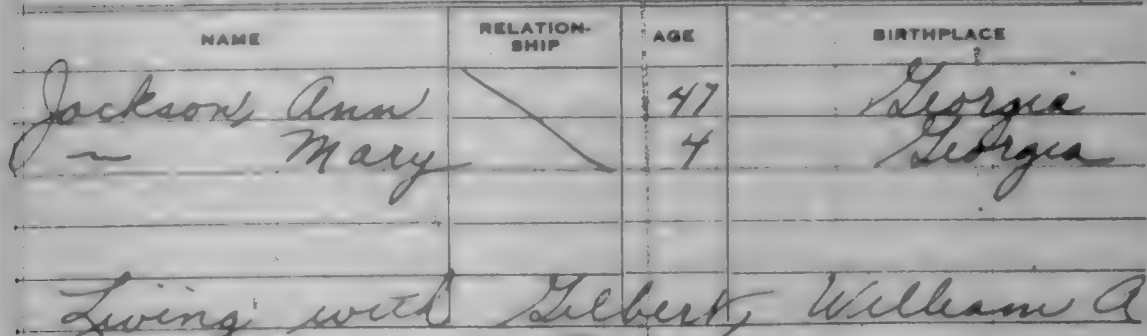 NAME RELATION-SHIP AGE BIRTHPLACE
Jackson, Ann 47 Georgia
— Mary 4 Georgia
Living with Gilbert, William A